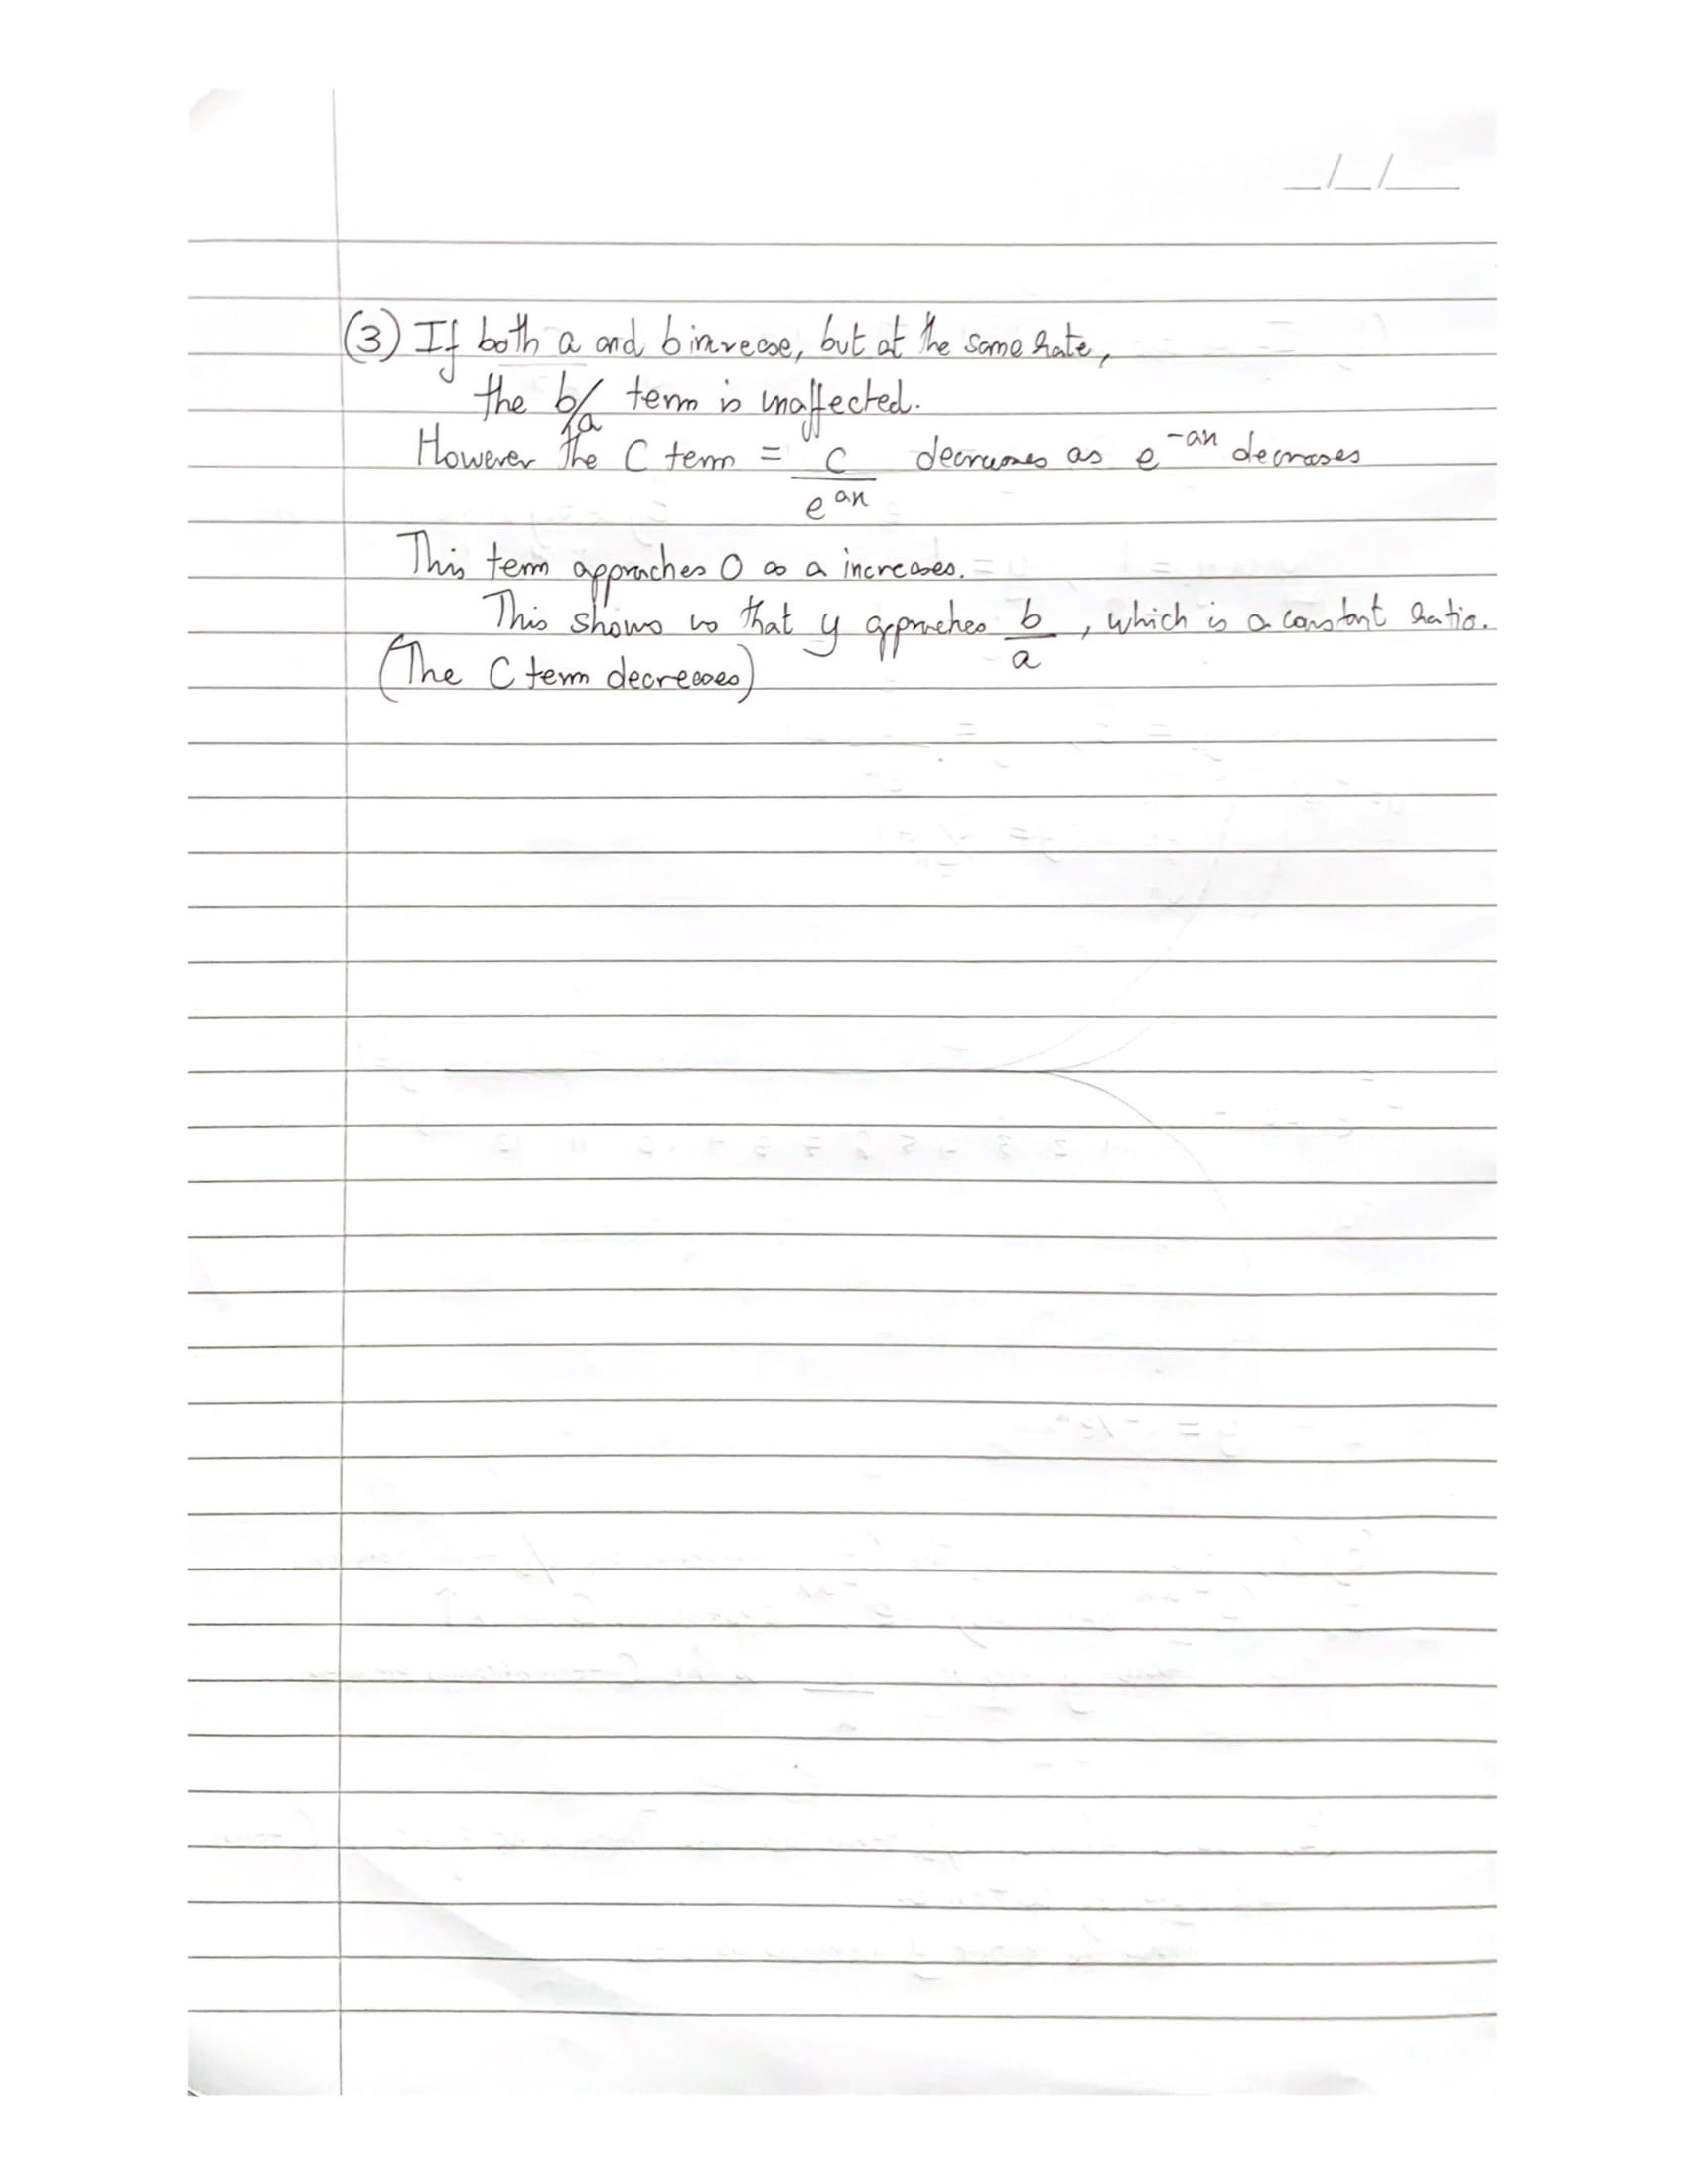 _/_/__
(3) If both a and b increase, but at the same rate,
the b/a term is unaffected.
However the C term = C/e^ax decreases as e^-ax decreases
This term approaches 0 as a increases.
This shows us that y approaches b/a, which is a constant ratio.
(The C term decreases)